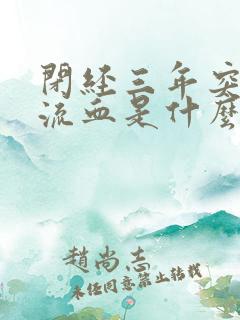 閉經三年突
流血是什麼
趙尚志
未經同意禁止轉載